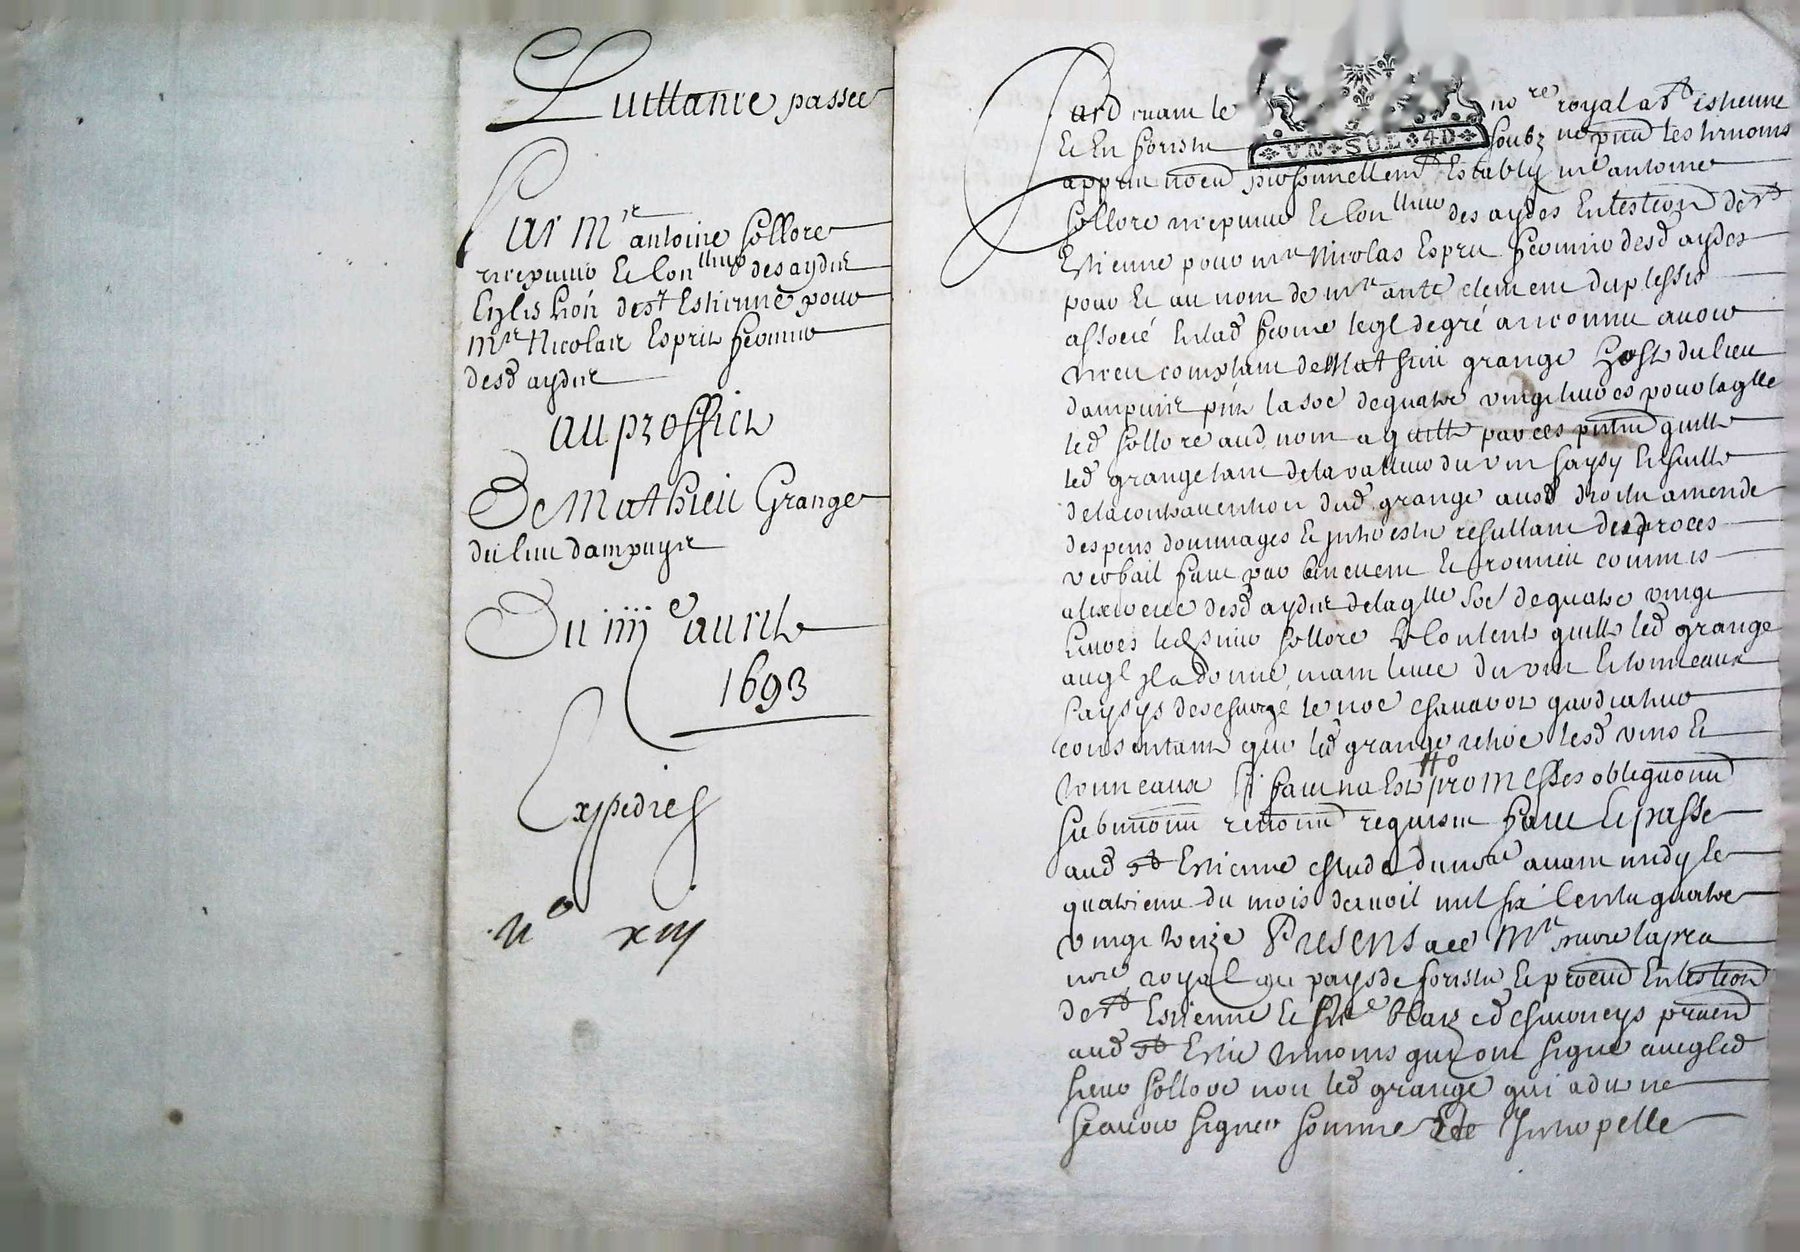 Quittance passee
Par Mre antoine sollore
recepueur et Con.lleur des aydes
En lElection de st Estienne pour
Mre Nicolas Esprit fermier
desd aydes
au proffict
De Mathieu Grange
du lieu dampuys
Du iiij e auril
1693
Expediez
No xiij
Pard euant le nore royal a st Estienne
Et En forestz soubz ne
UN SOL 4D
personnellemt Estably me antoine
sollore recepueur Et Con.lleur des aydes En lestion de st
Estienne pour mre Nicolas Esprit fermier desd aydes
pour Et au nom de mre ante clement duplessis
associé En lad ferme leql de gré a reconnu auoir
receu comptant de Mathieu grange host du lieu
dampuis la soe de quatre vingt liures pour laqlle
led sollore aud nom a quitté par ces quitte
led grange tant de la valleur du vin saysy Ensuitte
de la contrauention dud grange aux droitz amende
despens dommages Et Interestz resultant des proces
verbail faict par Et commis
a lexercice desd aydes de laqlle soe de quatre vingt
liures led sieur sollore Content quitte led grange
auql Il a donné main leuee du vin Et tonneaux
saysys deschargé le gardiateur
consentant que led grange retire lesd vins Et
tonneaux promesses obligaonns
submionns renonns requises faict Et passé
aud st Estienne estude du nore auant midy le
quatrieme du mois dauril mil six Centz quatre
vingt treize Presens a ce Mre
nore royal au pays de forestz Et En lestion
de st Estienne Et
aud st Estie tesmoins qui ont signé auec led
sieur sollore non led grange qui a dit ne
scauoir signer sommé Et Interpellé